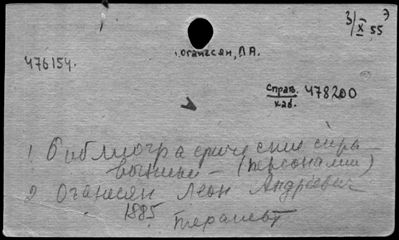 3/X 55 Э
Оганесян, Л.А.
476154.
Справ. 478200
каб.
1 Библиографические спра-
вочные — (персоналии)
2 Оганесян Леон Андреевич
1885 терапевт